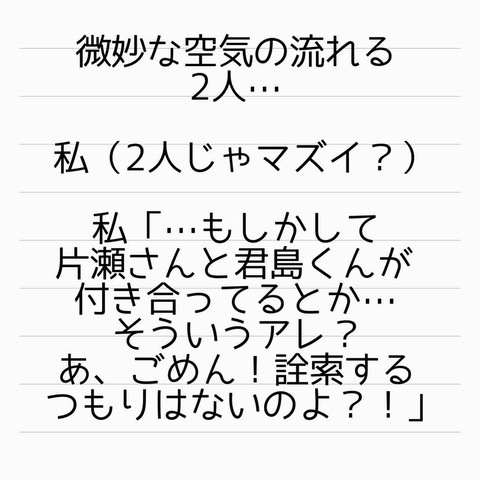 微妙な空気の流れる
2人…
私（2人じゃマズイ？）
私「…もしかして
片瀬さんと君島くんが
付き合ってるとか…
そういうアレ？
あ、ごめん！詮索する
つもりはないのよ？！」